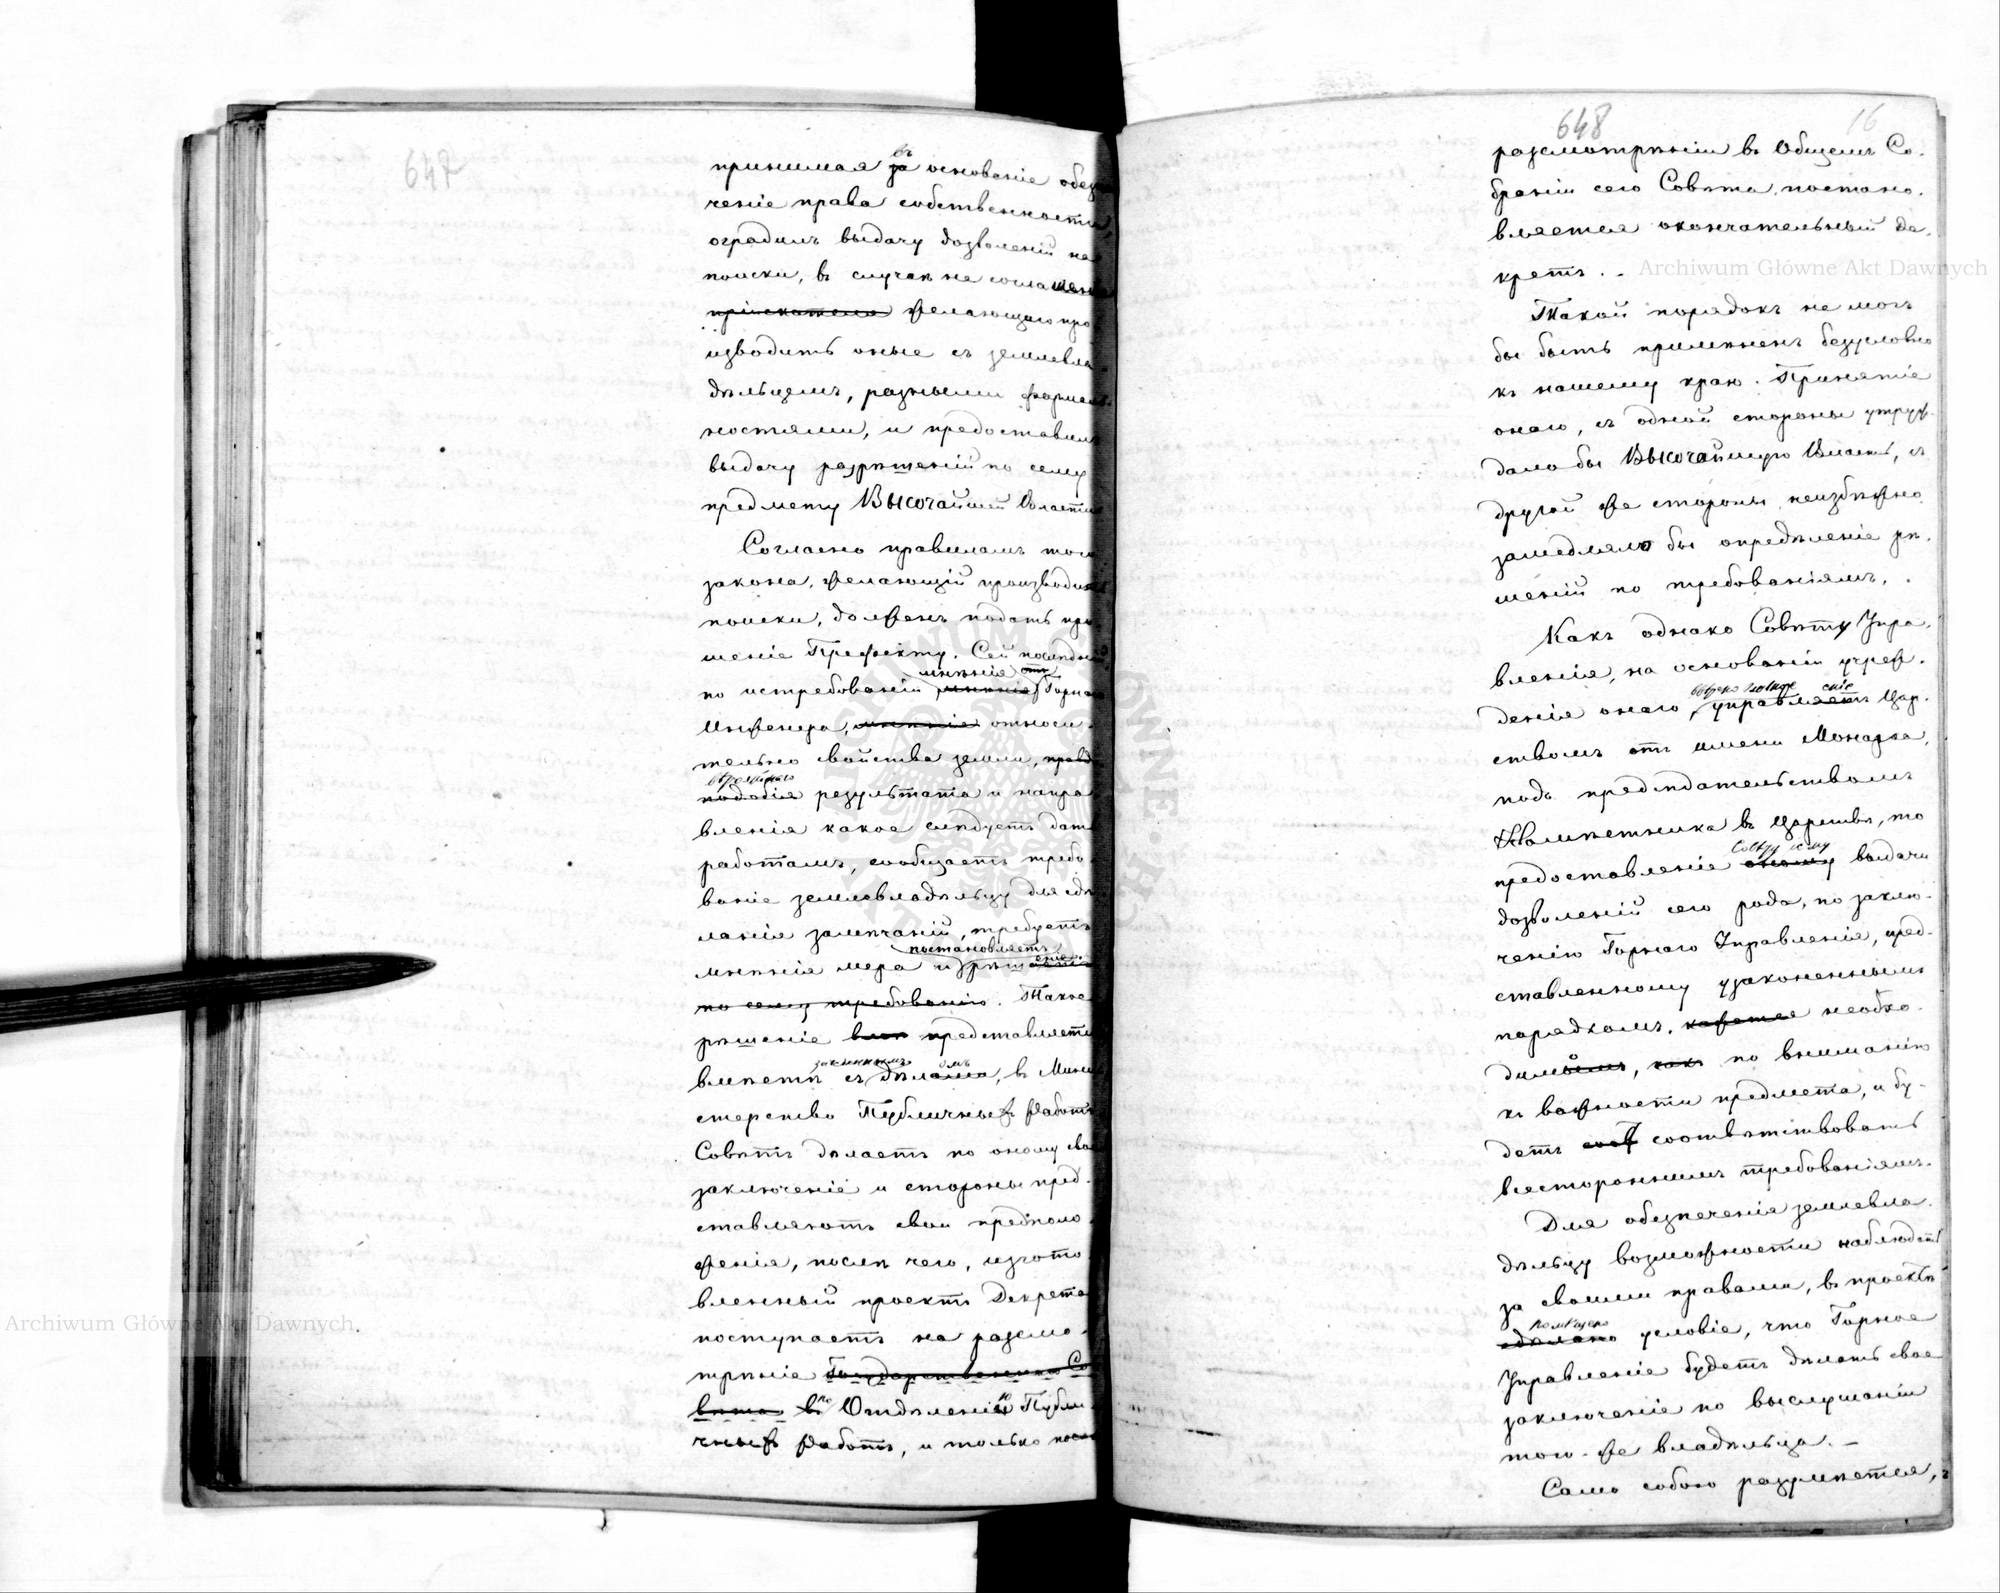 647
принимая въ за основаніе обез
ченіе права собственности,
оградилъ выдачу дозволеній на
поиски, въ случаѣ не соглашенія
пріискателя желающаго про
изводить оные съ землевла
дѣльцемъ, разными формаль
ностями, и предоставилъ
выдачу разрѣшеній по сему
предмету Высочайшей Власти.
Согласно правиламъ того
закона, желающій производить
поиски, долженъ подать про
шеніе Префекту. Сей послѣдній
мнѣнія отъ
по истребованіи мнѣнія Горнаго
Инженера, мнѣнія относи-
тельно свойства земли, правдо
вѣроятнаго
подобія результата и напра
вленія какое слѣдуетъ дать
работамъ, сообщаетъ требо-
ваніе землевладѣльцу для сдѣ
ланія замѣчаній, требуетъ
постановляетъ
мнѣнія мера и рѣшаетъ еніе
по сему требованію. Такое
рѣшеніе представляетъ
вмѣстѣ съ дѣлами, омъ въ Мини
стерство Публичныхъ Работъ
Совѣтъ дѣлаетъ по оному свое
заключеніе и стороны пред-
ставляютъ свои предполо-
женія, послѣ чего, изгото-
вленный проектъ Декрета
поступаетъ на разсмо-
трѣніе Государственнаго Со
вѣта въ по Отдѣленію Публи-
чныхъ Работъ, и только послѣ
648
16
разсмотрѣнія въ Общемъ Со-
браніи сего Совѣта, постано-
вляется окончательный де-
кретъ. -
Такой порядокъ не могъ
бы быть примѣненъ безусловно
къ нашему краю. Принятіе
онаго, съ одной стороны утруж-
дало бы Высочайшую Власть, съ
другой же стороны, неизбѣжно
замедляло бы опредѣленіе рѣ-
шеній по требованіямъ.
Какъ однако Совѣту Упра-
вленія, на основаніи учреж-
дено сіе
денія онаго, управляетъ Цар-
ствомъ отъ имени Монарха,
подъ предсѣдательствомъ
Намѣстника въ Царствѣ, то
Совѣту сему
предоставленіе оному выдачи
дозволеній сего рода, по заклю-
ченію Горнаго Управленія, пред-
ставленному узаконеннымъ
порядкомъ, кажется необхо-
димымъ, какъ по вниманію
къ важности предмета, и бу-
детъ соотвѣтствовать
всестороннимъ требованіямъ.
Для обезпеченія землевла-
дѣльцу возможности наблюдать
за своими правами, въ проектѣ
помѣщено
сдѣлано условіе, что Горное
Управленіе будетъ дѣлать свое
заключеніе по выслушаніи
того-же владѣльца. -
Само собою разумѣется,
Archiwum Główne Akt Dawnych
Archiwum Główne Akt Dawnych